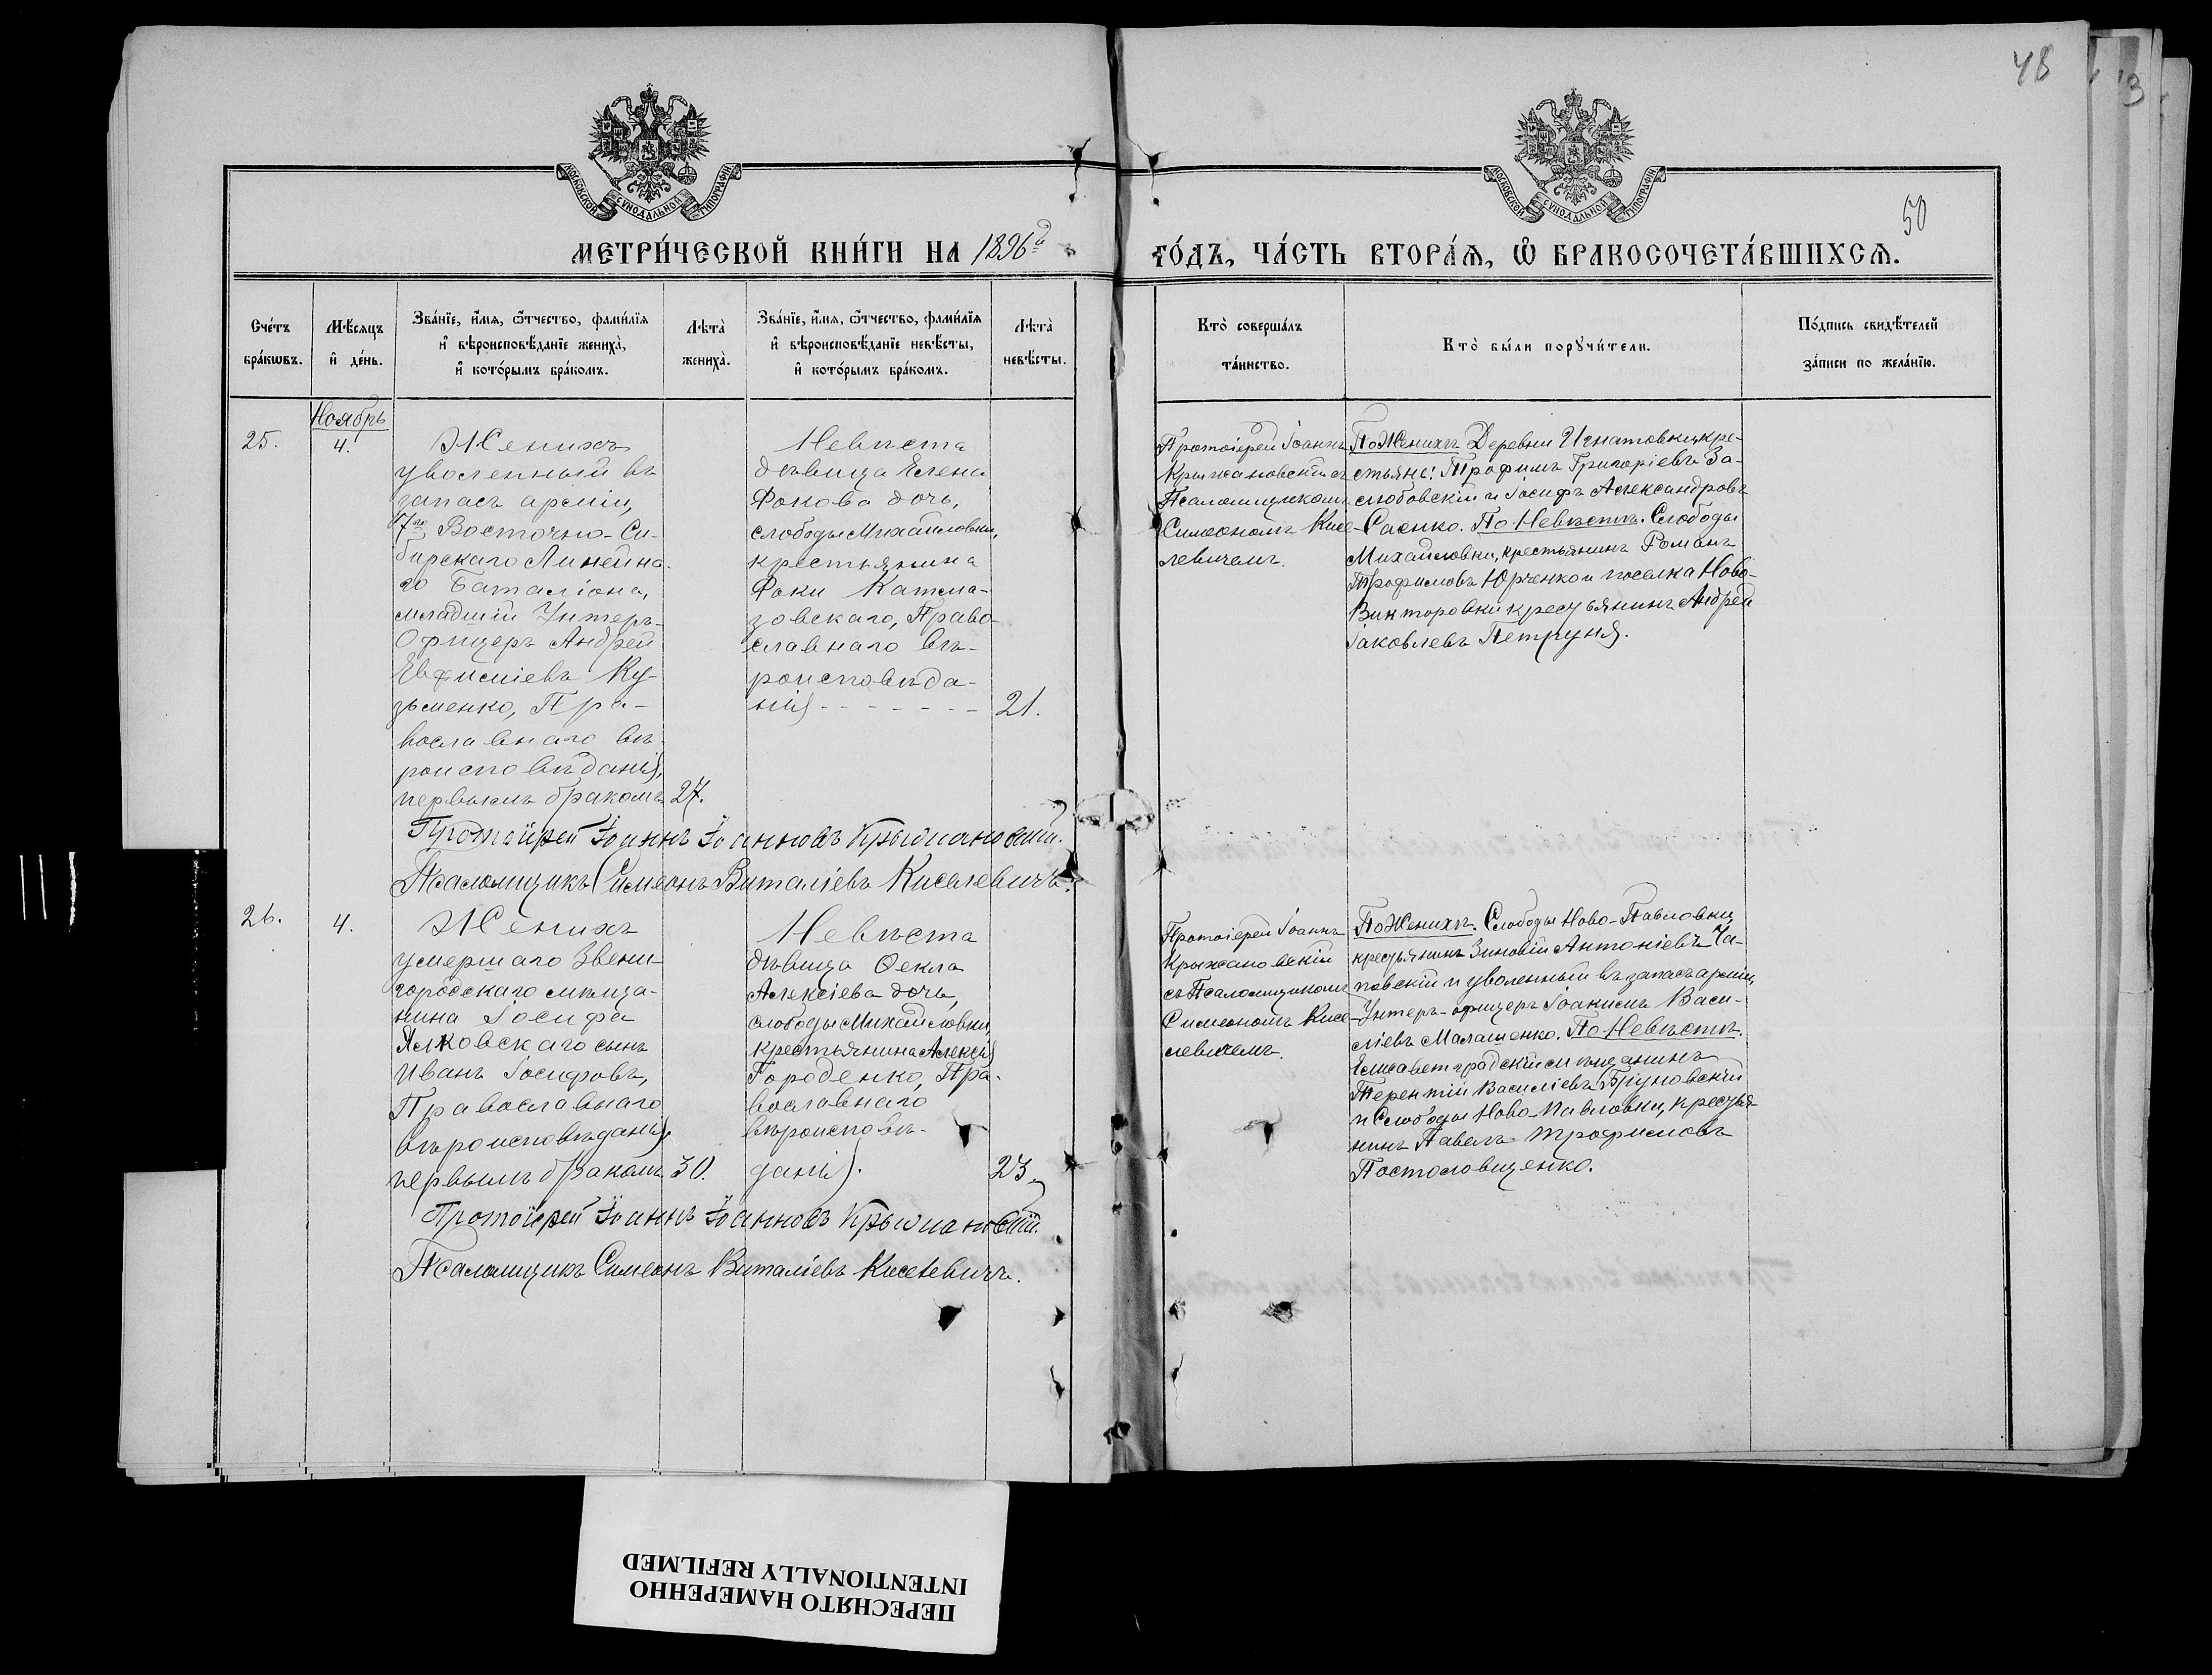 48
3
50
МОСКОВСКОЙ СѴНОДАЛЬНОЙ ТИПОГРАФІИ
МОСКОВСКОЙ СѴНОДАЛЬНОЙ ТИПОГРАФІИ
МЕТРИ́ЧЕСКОЙ КНИ́ГИ НА 1896й
ГО́ДЪ, ЧА́СТЬ ВТОРА́Ѧ, Ѽ БРАКОСОЧЕТА́ВШИХСѦ.
Сче́тъ
бра́кѡвъ.
Мѣ́сѧцъ
и҆ де́нь.
Зва́нїе, и҆́мѧ, ѻ҆́тчество, фамі́лїѧ
и҆ вѣроисповѣ́данїе жениха̀,
и҆ кото́рымъ бра́комъ.
Лѣта̀
жениха̀.
Зва́нїе, и҆́мѧ, ѻ҆́тчество, фамі́лїѧ
и҆ вѣроисповѣ́данїе невѣ́сты,
и҆ кото́рымъ бра́комъ.
Лѣта̀
невѣ́сты.
Кто̀ соверша́лъ
та́инство.
Кто̀ бы́ли порꙋчи́тели.
По́дпись свидѣ́телей
за́писи по жела́нїю.
Ноябрь
25.
4.
Женихъ
уволенный въ
запасъ арміи,
7го Восточно-Си-
бирскаго Линейна-
го Баталіона,
младшій Унтеръ-
Офицеръ Андрей
Евфиміевъ Ку-
зьменко, Пра-
вославнаго вѣ-
роисповѣданія,
первымъ бракомъ
27.
Невѣста
дѣвица Елена
Фокова дочь,
слободы Михайловки,
крестьянина
Фоки Катма-
зовскаго, Право-
славнаго вѣ-
роисповѣда-
нія
21.
Протоіерей Іоаннъ
Крыжановскій съ
Псаломщикомъ
Симеономъ Кисе-
левичемъ.
По Женихѣ Деревни Игнатовки, кре-
стьяне: Трофимъ Григоріевъ За-
слобовскій и Іосифъ Александровъ
Саенко. По Невѣстѣ. Слободы
Михайловки, крестьянинъ Романъ
Трофимовъ Юрченко и поселка Ново-
Викторовки крестьянинъ Андрей
Іаковлевъ Петруня.
Протоіерей Іоаннъ Іоанновъ Крыжановскій.
Псаломщикъ Симеонъ Виталіевъ Киселевичъ.
26.
4.
Женихъ
умершаго Звени-
городскаго мѣща-
нина Іосифа
Ялковскаго сынъ
Иванъ Іосифовъ,
Православнаго
вѣроисповѣданія,
первымъ бракомъ
30.
Невѣста
дѣвица Ѳекла
Алексіева дочь,
слободы Михайловки
крестьянина Алексія
Городенко, Пра-
вославнаго
вѣроисповѣ-
данія.
23
Протоіерей Іоаннъ
Крыжановскій
съ Псаломщикомъ
Симеономъ Кисе-
левичемъ.
По Женихѣ. Слободы Ново-Павловки,
крестьянинъ Зиновій Антоніевъ Ча-
повскій и уволенный въ запасъ арміи,
Унтеръ-офицеръ Іоакимъ Васи-
ліевъ Малашенко. По Невѣстѣ.
Елисаветградскій мѣщанинъ
Терентій Василіевъ Бріуновскій
и Слободы Ново-Павловки, крестья-
нинъ Павелъ Трофимовъ
Постоловщенко.
Протоіерей Іоаннъ Іоанновъ Крыжановскій.
Псаломщикъ Симеонъ Виталіевъ Киселевичъ.
ПЕРЕСНЯТО НАМЕРЕННО
INTENTIONALLY REFILMED